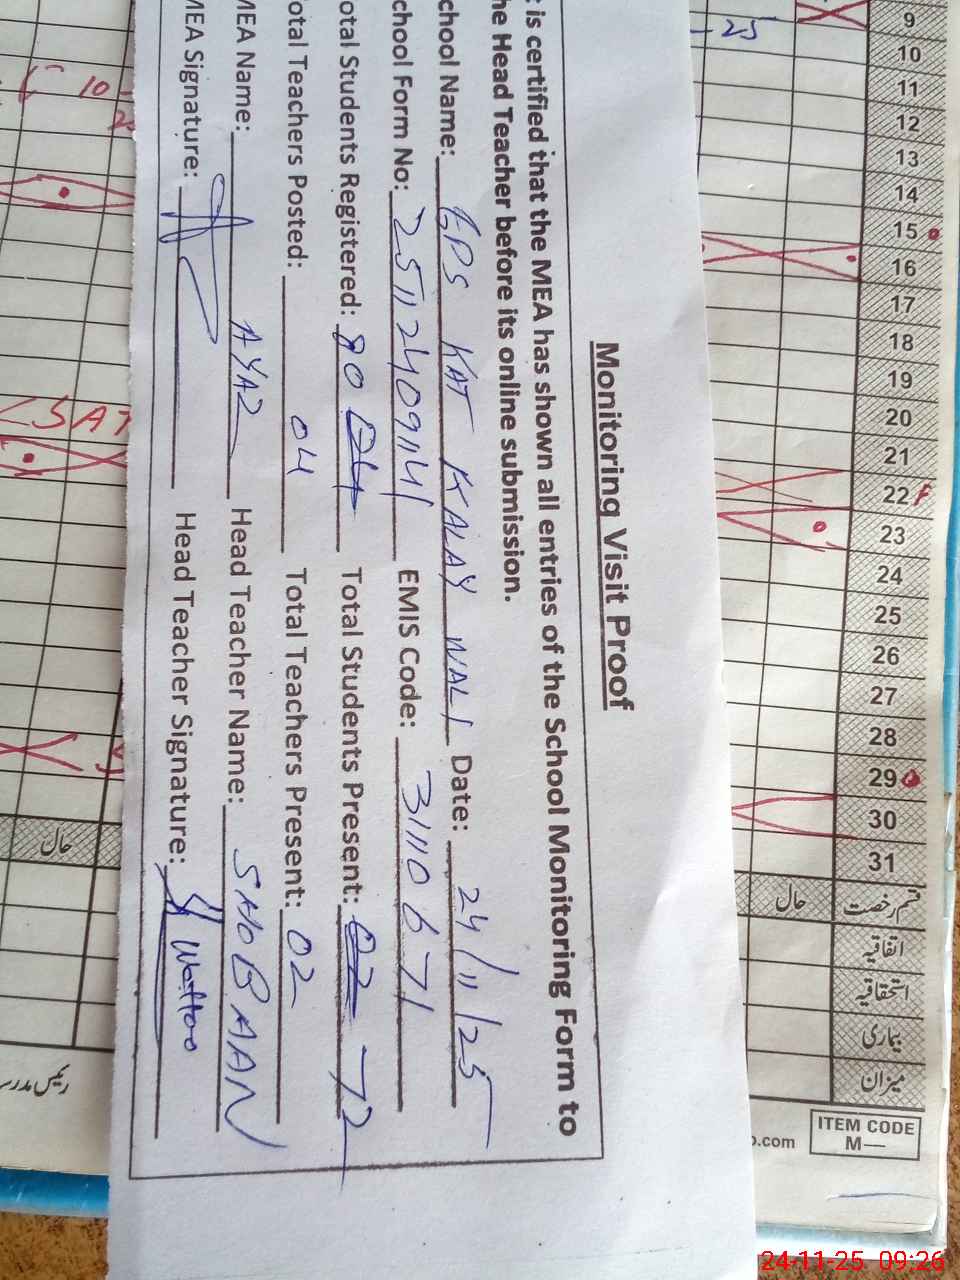 Monitoring Visit Proof
t is certified that the MEA has shown all entries of the School Monitoring Form to
he Head Teacher before its online submission.
chool Name: GPS KAT KALAY WALI Date: 24/11/25
chool Form No: 25112409114 EMIS Code: 31110671
otal Students Registered: 80 04 Total Students Present: 02 72
otal Teachers Posted: 04 Total Teachers Present: 02
MEA Name: AYAZ Head Teacher Name: SHOBAAN
MEA Signature: Head Teacher Signature: Wattoo
9
10
11
12
13
14
15
16
17
18
19
20
21
22
23
24
25
26
27
28
29
30
31
قسم رخصت حال
اتفاقیہ
استحقاقیہ
بیماری
میزان
ITEM CODE
M—
.com
25
10
SAT
حال
رئیس مدرسہ
24-11-25 09:26